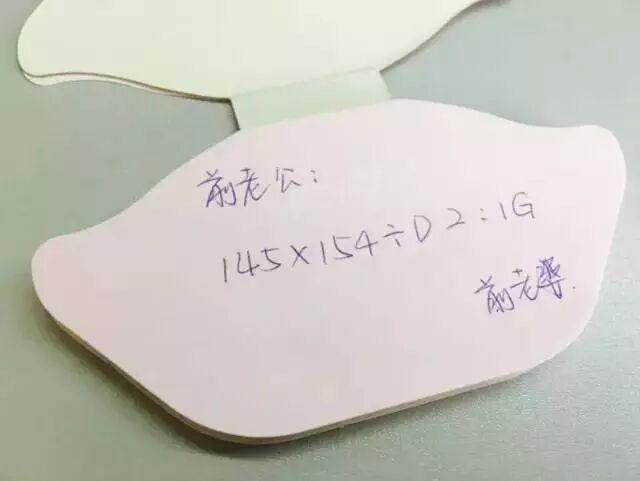 前老公：
145×154÷D2：1G
前老婆.